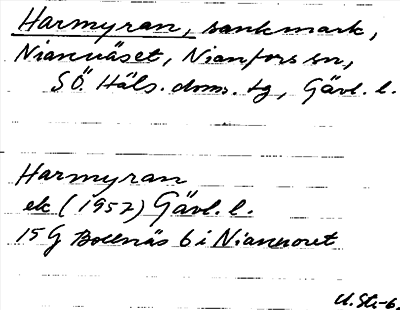 Harmyran, sankmark,
Niannäset, Nianfors sn,
SÖ. Häls. doms. tg, Gävl. l.
Harmyran
ek (1957) Gävl. l.
15G Bollnäs 6 i Niannoret
U. St-b.